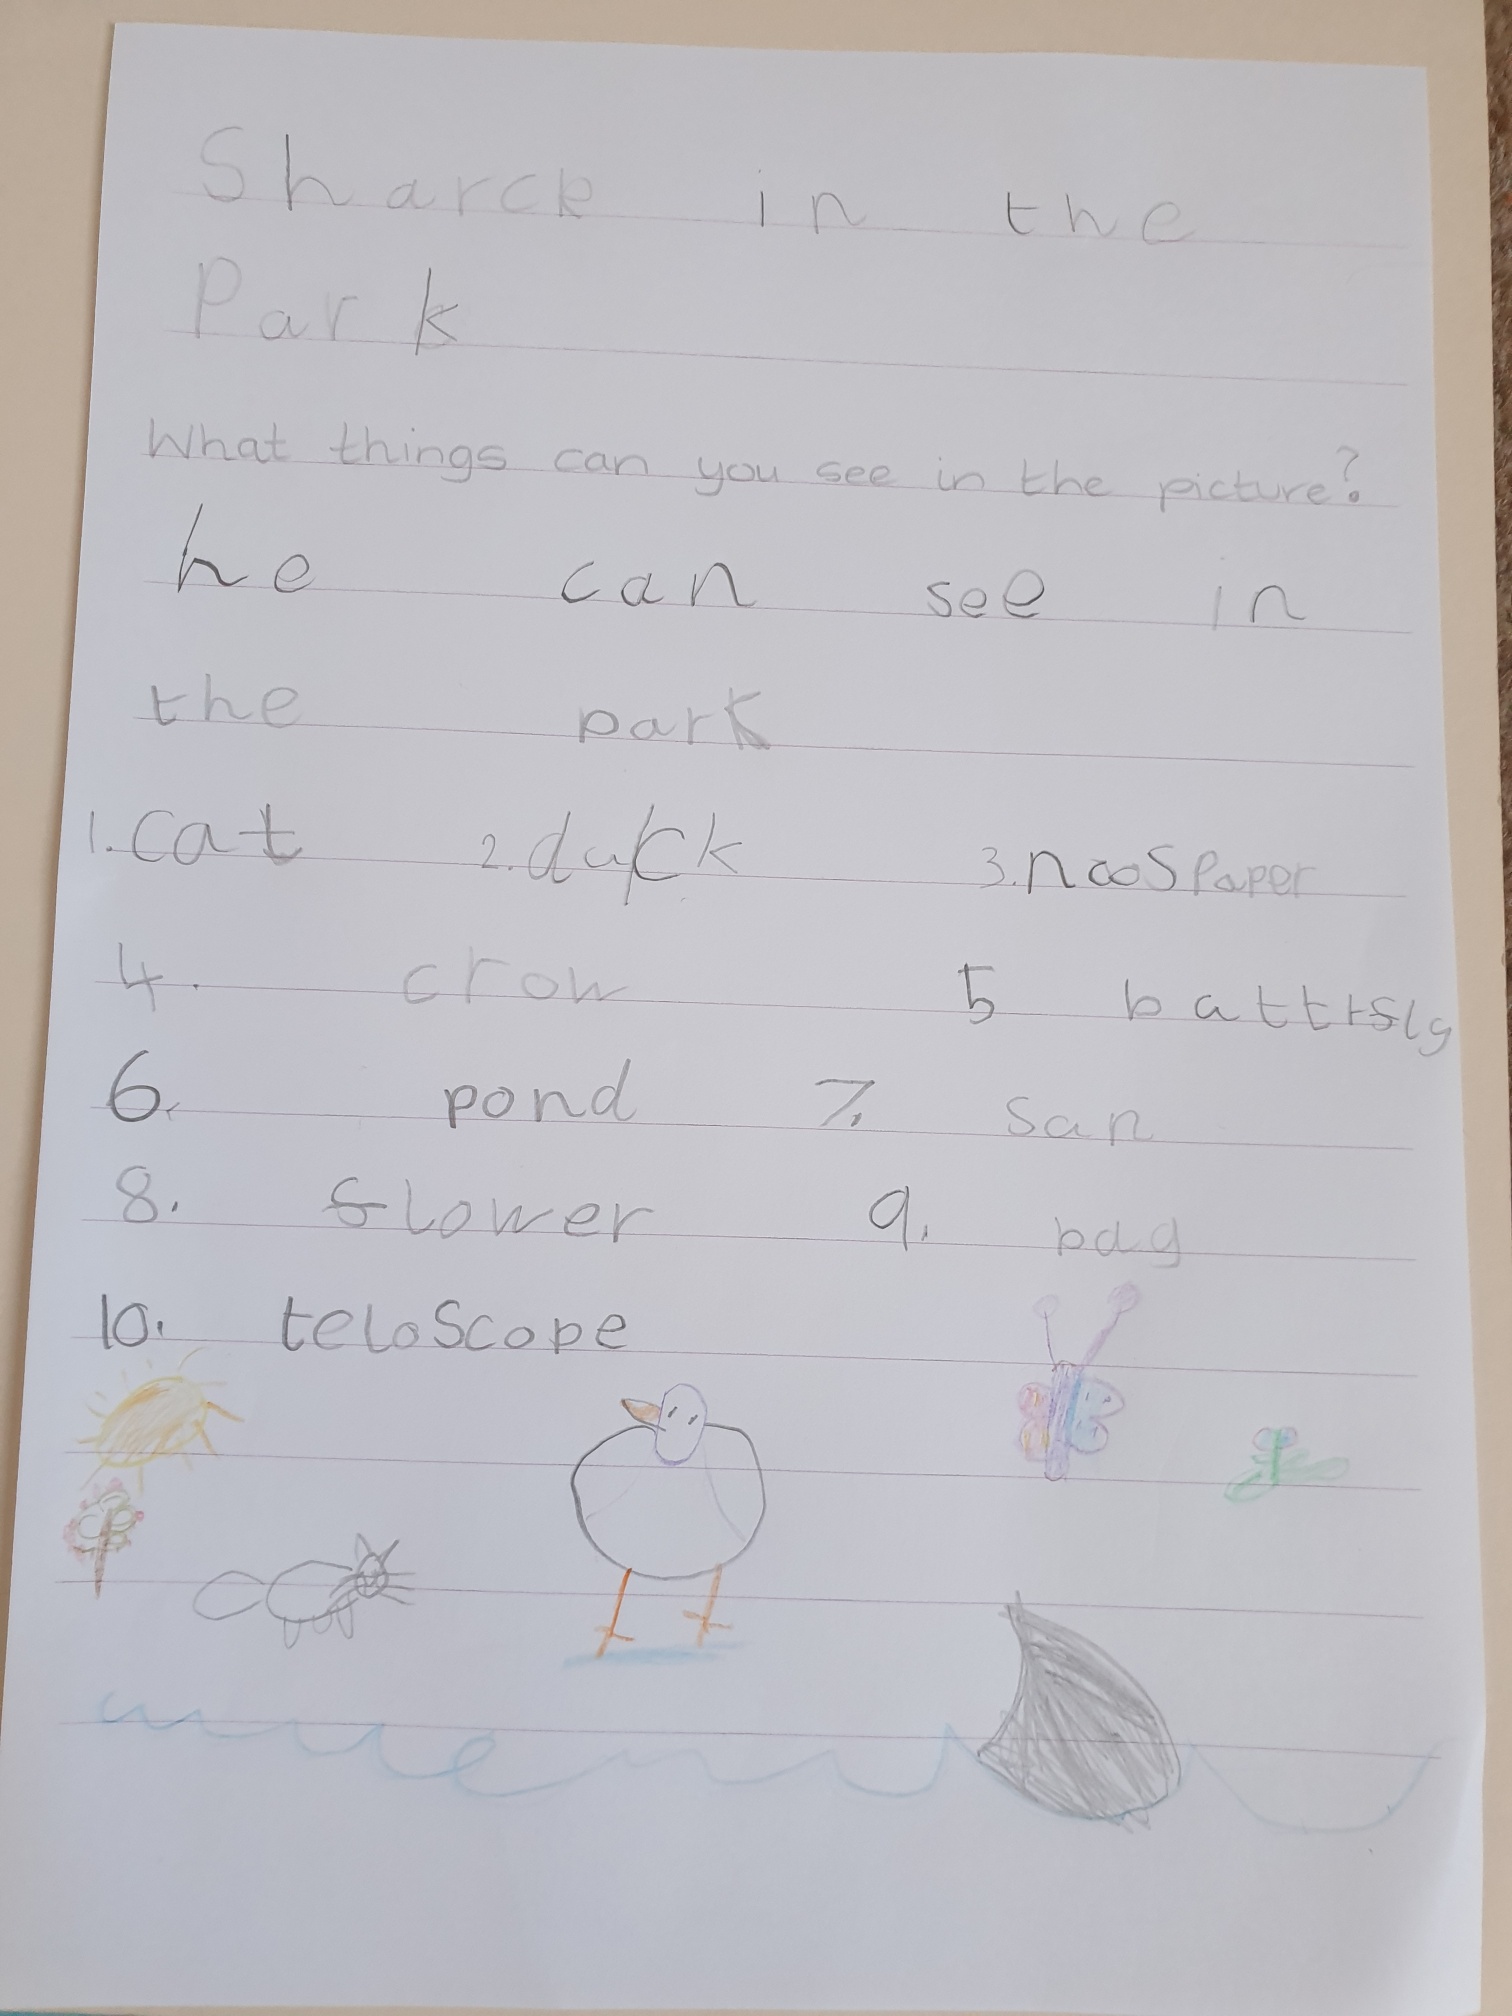 Sharck in the
Park
What things can you see in the picture?
he can see in
the park
1. cat 2. duck 3. noospaper
4. crow 5 battrfly
6. pond 7. san
8. flower 9. bag
10. teloscope